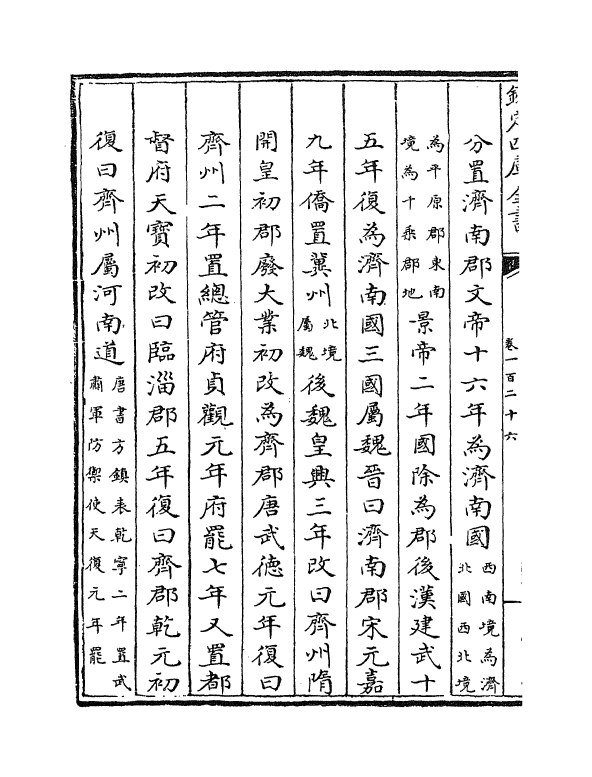 欽定四庫全書
卷一百二十六
分置濟南郡文帝十六年為濟南國西南境為濟北國西北境
為平原郡東南境為千乘郡地景帝二年國除為郡後漢建武十
五年復為濟南國三國屬魏晉曰濟南郡宋元嘉
九年僑置冀州北境屬魏後魏皇興三年改曰齊州隋
開皇初郡廢大業初改為齊郡唐武德元年復曰
齊州二年置總管府貞觀元年府罷七年又置都
督府天寶初改曰臨淄郡五年復曰齊郡乾元初
復曰齊州屬河南道唐書方鎮表乾寧二年置武肅軍防禦使天復元年罷